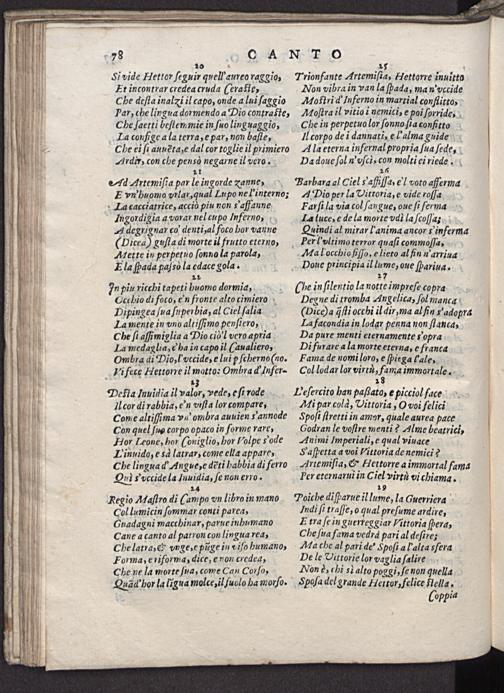 78 CANTO
20
Si vide Hettor seguir quell'aureo raggio,
Et incontrar credea cruda Ceraste,
Che desta inalzi il capo, onde a lui saggio
Par, che lingua dormendo a Dio contraste,
Che saetti bestemmie in suo linguaggio,
La consige a la terra, e par, non baste,
Che ei si avveta, e dal cor toglie il primiero
Ardir, con che pensò negarne il vero.
21
Ad Artemisia par le ingorde zanne,
E vn'huomo vrlar, qual Lupo ne l'interno;
La cacciatrice, acciò piu non s'affanne
Ingordigia a vorar nel cupo Inferno,
A degrignar co' denti, al foco hor vanne
(Dicea) gusta di morte il frutto eterno,
Mette in perpetuo sonno la parola,
E la spada passò la edace gola.
22
In piu ricchi tapeti huomo dormia,
Occhio di foco, e'n fronte alto cimiero
Dipingea sua superbia, al Ciel salia
La mente in vno altissimo pensiero,
Che si assimiglia a Dio ciò'l vero apria
La medaglia, c'ha in capo il Caualiero,
Ombra di Dio, l'vccide, e lui p scherno (no.
Vi fece Hettorre il motto: Ombra d'Infer-
23
Desta Inuidia il valor, vede, e si rode
Il cor di rabbia, e'n vista lor compare,
Come altissima vn' ombra auuien s'annode
Con quel suo corpo opaco in forme rare,
Hor Leone, hor Coniglio, hor Volpe s'ode
L'inuido, e sà latrar, come ella appare,
Che lingua d'Angue, e dēti habbia di ferro
Quì s'vccide la Inuidia, se non erro.
24
Regio Mastro di Campo vn libro in mano
Col lumicin sommar conti parea,
Guadagni macchinar, parue inhumano
Cane a canto al patron con lingua rea,
Che latra, & vnge, e pūge in viso humano,
Forma, e riforma, dice, e non credea,
Che ne la morte sua, come Can Corso,
Quād'hor la līgua molce, il suolo ha morso.
25
Trionfante Artemisia, Hettorre inuitto
Non vibra in van la spada, ma n'vccide
Mostri d'Inferno in martial conflitto,
Mostra il vitio i nemici, e poi sorride,
Che in perpetuo lor sonno sia confitto
Il corpo de i dannati, e l'alma guide
A la eterna infernal propria sua sede,
Da doue sol n'vscì, con molti ei riede.
26
Barbara al Ciel s'affissa, e'l voto afferma
A Dio per la Vittoria, e vide rossa
Farsi la via col sangue, oue si ferma
La luce, e de la morte vdì la scossa;
Quindi al mirar l'anima ancor s'inferma
Per l'vltimo terror quasi commossa,
Ma l'occhio fisso, e lieto al fin n'arriua
Doue principia il lume, oue spariua.
27
Che in silentio la notte imprese copra
Degne di tromba Angelica, sol manca
(Dice) a q̄sti occhi il dir, ma al fin s'adopra
La facondia in lodar penna non stanca,
Da pure menti eternamente s'opra
Di furare a la morte eterna, e franca
Fama de nomi loro, e spiega l'ale,
Col lodar lor virtù, fama immortale.
28
L'esercito han passato, e picciol face
Mi par colà, Vittoria, O voi felici
Sposi stretti in amor, quale aurea pace
Godran le vostre menti? Alme beatrici,
Animi Imperiali, e qual viuace
S'aspetta a voi Vittoria de nemici?
Artemisia, & Hettorre a immortal fama
Per eternarui in Ciel virtù vi chiama.
29
Poiche disparue il lume, la Guerriera
Indi si trasse, o qual presume ardire,
E tra se in guerreggiar Vittoria spera,
Che sua fama vedrà pari al desire;
Ma che al pari de' Sposi a l'alta sfera
De le Vittorie lor vaglia salire
Non è, chi sì alto poggi, se non quella
Sposa del grande Hettor, felice stella.
Coppia